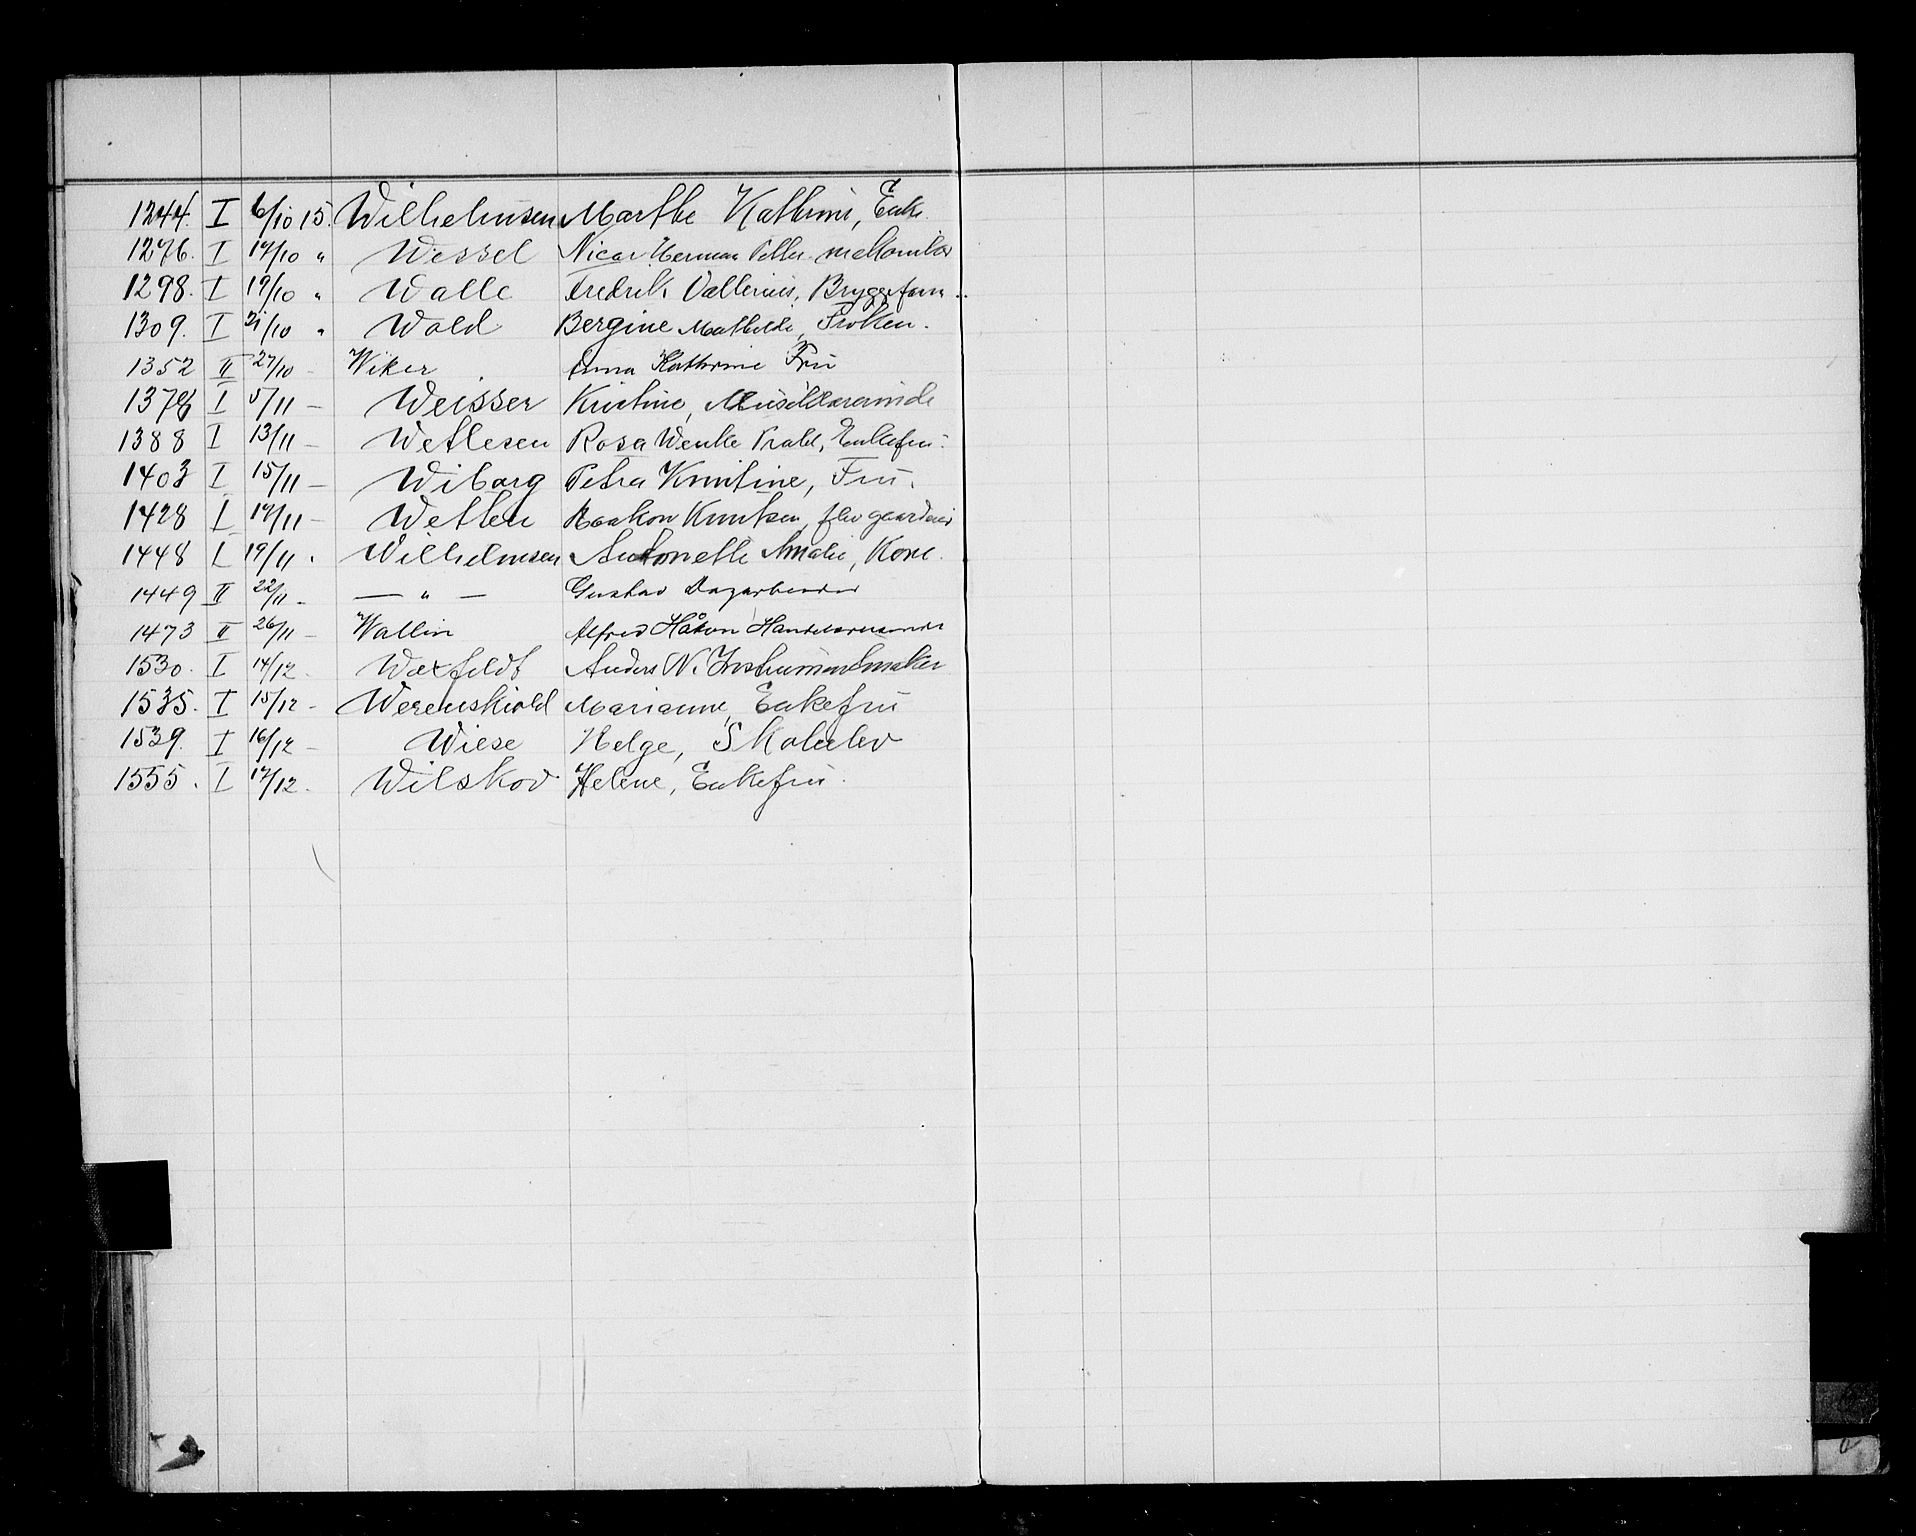 1244. I 6/10 15. Wilhelmsen Marthe Kathrine, Enke.
1276. I 14/10 " Wessel Nicar Herman Peller
1298. I 19/10 " Walle Fredrik Vallerius, Bryggeform..
1309. I 21/10 " Wold Bergine Mathilde, Frøken.
1352 II 27/10 - Wiker Anna Kathrine Fru
1378 I 5/11 - Weisser Kristine, Musiklærerinde
1388 I 13/11 - Wetlesen Rosa Wenke Enkefru.
1403 I 15/11 - Wiborg Petra Kristine, Fru.
1428 I 17/11 - Wetlen Haakon Knutsen, fhv gaardeier
1448 I 19/11 . Wilhelmsen Antonette Amalie, Kone.
1449 II 22/11 - — " — Gustav Dagarbeider
1473 II 26/11 - Wallin Alfred Håkon Handelsreisende
1530. I 14/12 . Waxfeldt Anders N. Instrumentmaker
1535. I 15/12 - Werenskiold Marianne, Enkefru
1539. I 16/12 - Wiese Helge, Skoleelev
1555. I 17/12 . Wilskov Helene, Enkefru.